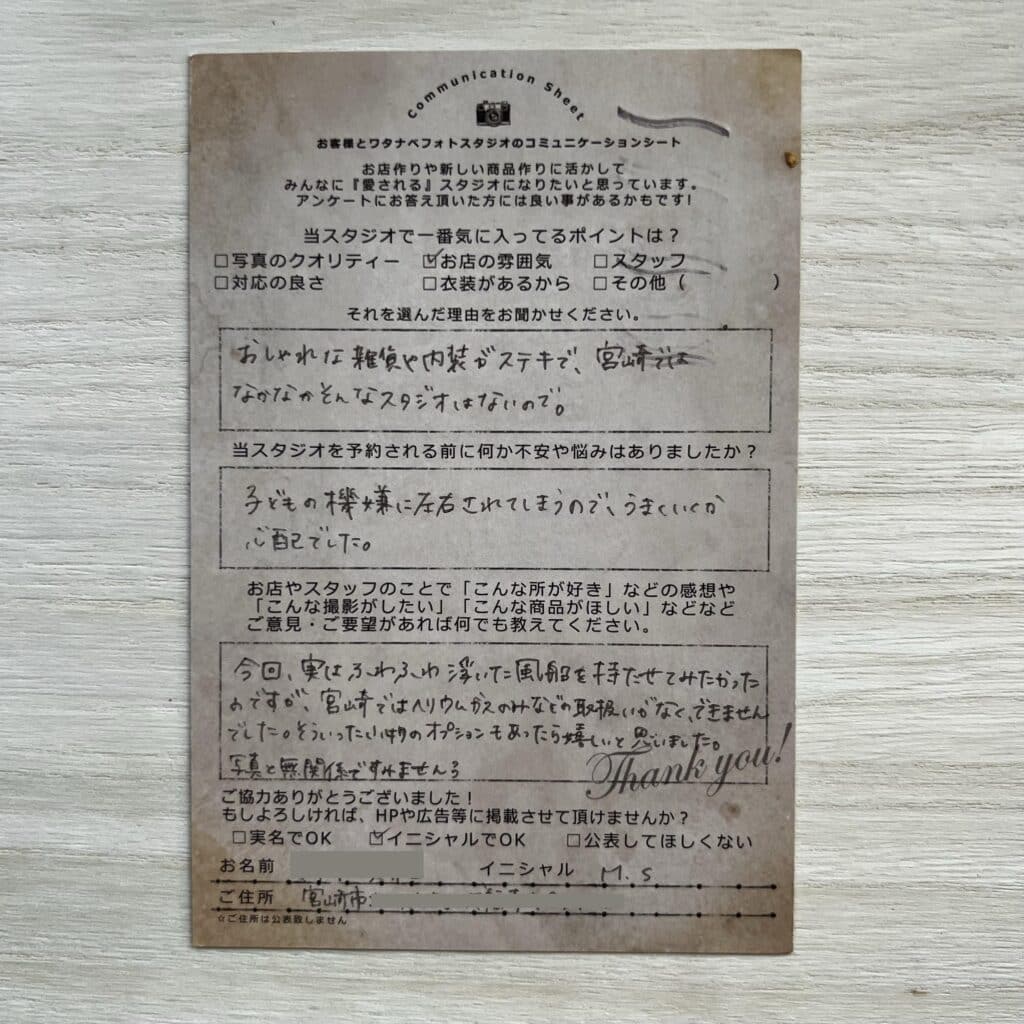 Communication Sheet
お客様とワタナベフォトスタジオのコミュニケーションシート
お店作りや新しい商品作りに活かして
みんなに『愛される』スタジオになりたいと思っています。
アンケートにお答え頂いた方には良い事があるかもです!
当スタジオで一番気に入ってるポイントは?
□写真のクオリティー ☑お店の雰囲気 □スタッフ
□対応の良さ □衣装があるから □その他( )
それを選んだ理由をお聞かせください。
おしゃれな雑貨や内装がステキで、宮崎では
なかなかそんなスタジオはないので。
当スタジオを予約される前に何か不安や悩みはありましたか?
子どもの機嫌に左右されてしまうので、うまくいくか
心配でした。
お店やスタッフのことで「こんな所が好き」などの感想や
「こんな撮影がしたい」「こんな商品がほしい」などなど
ご意見・ご要望があれば何でも教えてください。
今回、実はふわふわ浮いた風船を持たせてみたかった
のですが、宮崎ではヘリウムガスのみなどの取扱いがなく、できません
でした。そういった小物のオプションもあったら嬉しいと思いました。
写真と無関係ですみません
Thank you!
ご協力ありがとうございました!
もしよろしければ、HPや広告等に掲載させて頂けませんか?
□実名でOK ☑イニシャルでOK □公表してほしくない
お名前 イニシャル M.S
ご住所 宮崎市
☆ご住所は公表致しません